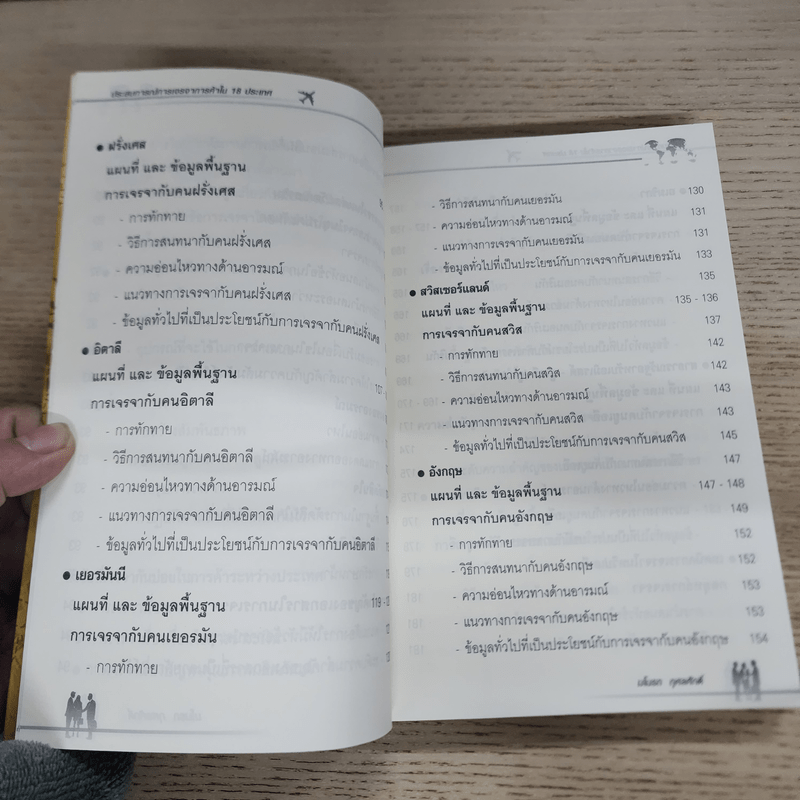 ประสบการณ์การเจรจาการค้าใน 18 ประเทศ
● ฝรั่งเศส
แผนที่ และ ข้อมูลพื้นฐาน
การเจรจากับคนฝรั่งเศส
- การทักทาย
- วิธีการสนทนากับคนฝรั่งเศส
- ความอ่อนไหวทางด้านอารมณ์
- แนวทางการเจรจากับคนฝรั่งเศส
- ข้อมูลทั่วไปที่เป็นประโยชน์กับการเจรจากับคนฝรั่งเศส
● อิตาลี
แผนที่ และ ข้อมูลพื้นฐาน
การเจรจากับคนอิตาลี
- การทักทาย
- วิธีการสนทนากับคนอิตาลี
- ความอ่อนไหวทางด้านอารมณ์
- แนวทางการเจรจากับคนอิตาลี
- ข้อมูลทั่วไปที่เป็นประโยชน์กับการเจรจากับคนอิตาลี
● เยอรมันนี
แผนที่ และ ข้อมูลพื้นฐาน 119 -
การเจรจากับคนเยอรมัน
- การทักทาย
- วิธีการสนทนากับคนเยอรมัน 130
- ความอ่อนไหวทางด้านอารมณ์ 131
- แนวทางการเจรจากับคนเยอรมัน 131
- ข้อมูลทั่วไปที่เป็นประโยชน์กับการเจรจากับคนเยอรมัน 133
● สวิสเซอร์แลนด์ 135
แผนที่ และ ข้อมูลพื้นฐาน 135 - 136
การเจรจากับคนสวิส 137
- การทักทาย 142
- วิธีการสนทนากับคนสวิส 142
- ความอ่อนไหวทางด้านอารมณ์ 143
- แนวทางการเจรจากับคนสวิส 143
- ข้อมูลทั่วไปที่เป็นประโยชน์กับการเจรจากับคนสวิส 145
● อังกฤษ 147
แผนที่ และ ข้อมูลพื้นฐาน 147 - 148
การเจรจากับคนอังกฤษ 149
- การทักทาย 152
- วิธีการสนทนากับคนอังกฤษ 152
- ความอ่อนไหวทางด้านอารมณ์ 153
- แนวทางการเจรจากับคนอังกฤษ 153
- ข้อมูลทั่วไปที่เป็นประโยชน์กับการเจรจากับคนอังกฤษ 154